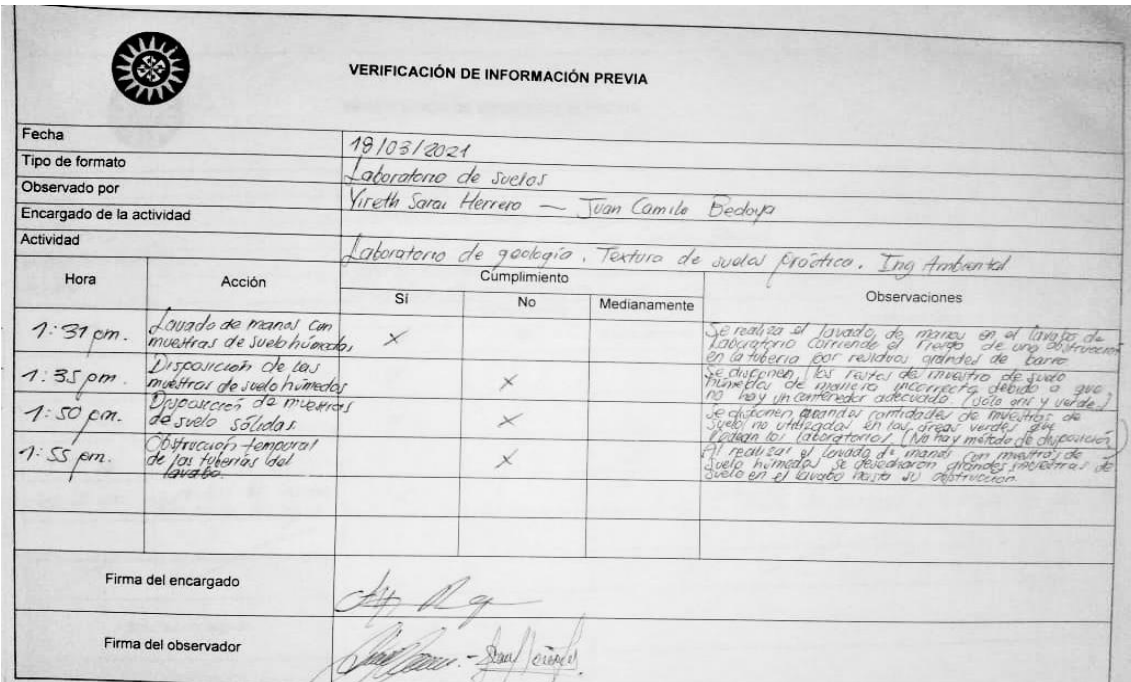 VERIFICACIÓN DE INFORMACIÓN PREVIA
Fecha
18/03/2021
Tipo de formato
Laboratorio de suelos
Observado por
Yireth Sarai Herrera — Juan Camilo Bedoya
Encargado de la actividad
Actividad
Laboratorio de geología. Textura de suelos práctica. Ing Ambiental
Hora
Acción
Cumplimiento
Observaciones
Sí
No
Medianamente
1:31 pm.
Lavado de manos con
muestras de suelo húmedas
X
Se realiza el lavado de manos en el lavabo de
Laboratorio corriendo el riesgo de una obstrucción
en la tubería por residuos grandes de barro.
1:35 pm.
Disposición de las
muestras de suelo húmedas
X
Se disponen los restos de muestra de suelo
húmedas de manera incorrecta debido a que
no hay un contenedor adecuado. (sólo gris y verde.)
1:50 pm.
Disposición de muestras
de suelo sólidas.
X
Se disponen grandes cantidades de muestras de
suelo no utilizadas en las áreas verdes que
rodean los laboratorios. (No hay método de disposición)
1:55 pm.
Obstrucción temporal
de las tuberías del
lavabo.
X
Al realizar el lavado de manos con muestras de
suelo húmedas se desecharon grandes de
suelo en el lavabo hasta su obstrucción.
Firma del encargado
Firma del observador